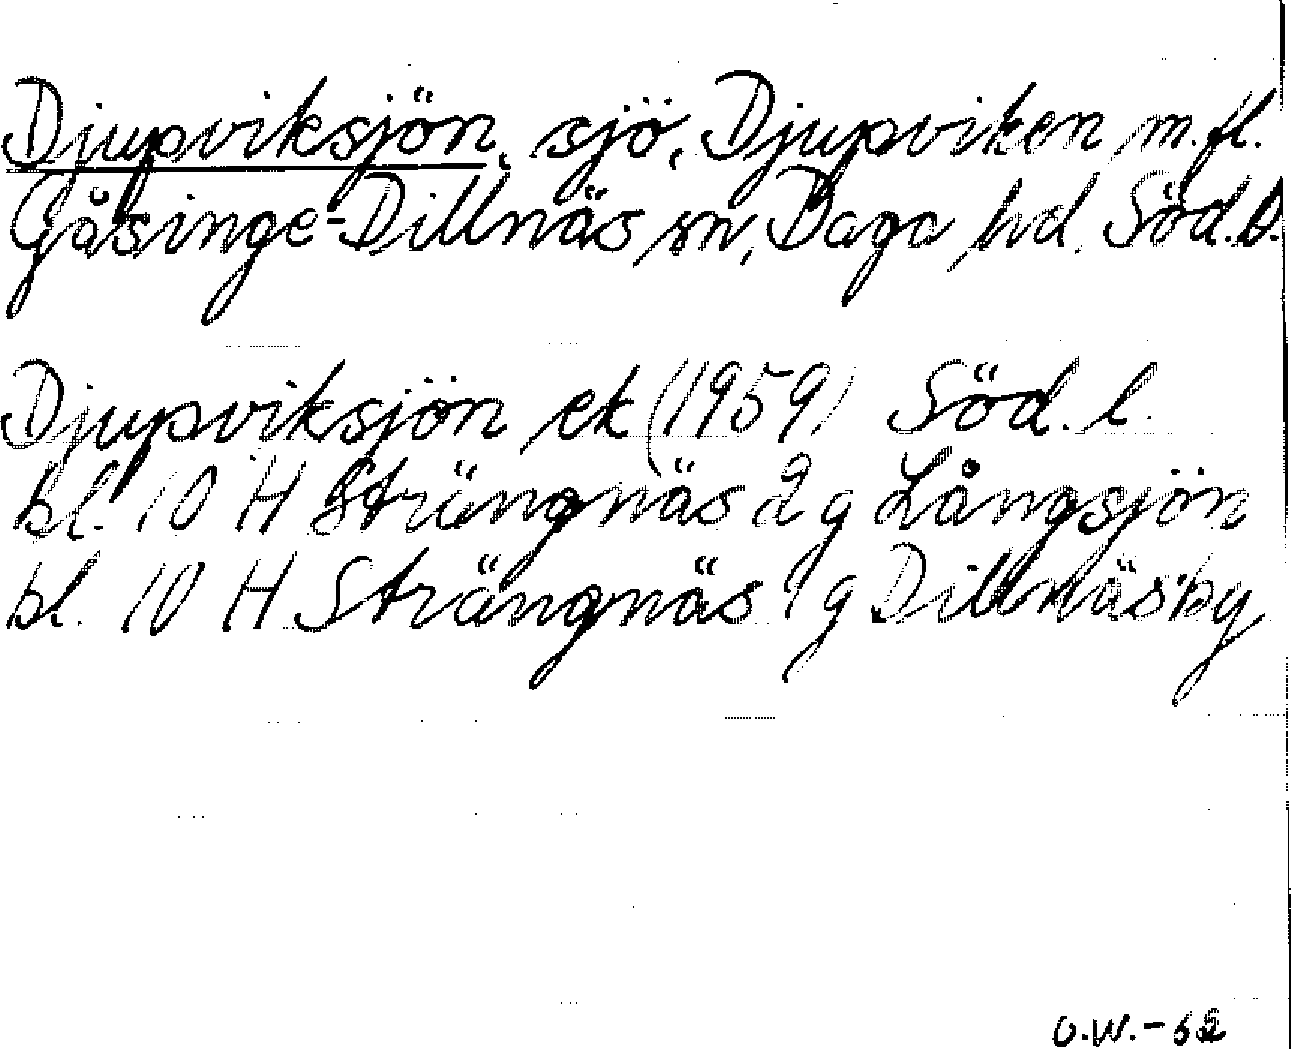 Djupviksjön, sjö, Djupviken m.fl.
Gåsinge-Dillnäs sn, Daga hd, Söd.l.
Djupviksjön ek (1959) Söd.l.
bl. 10 H Strängnäs 2 g Långsjön
bl. 10 H Strängnäs 1 g Dillnäsby
O.W.-62